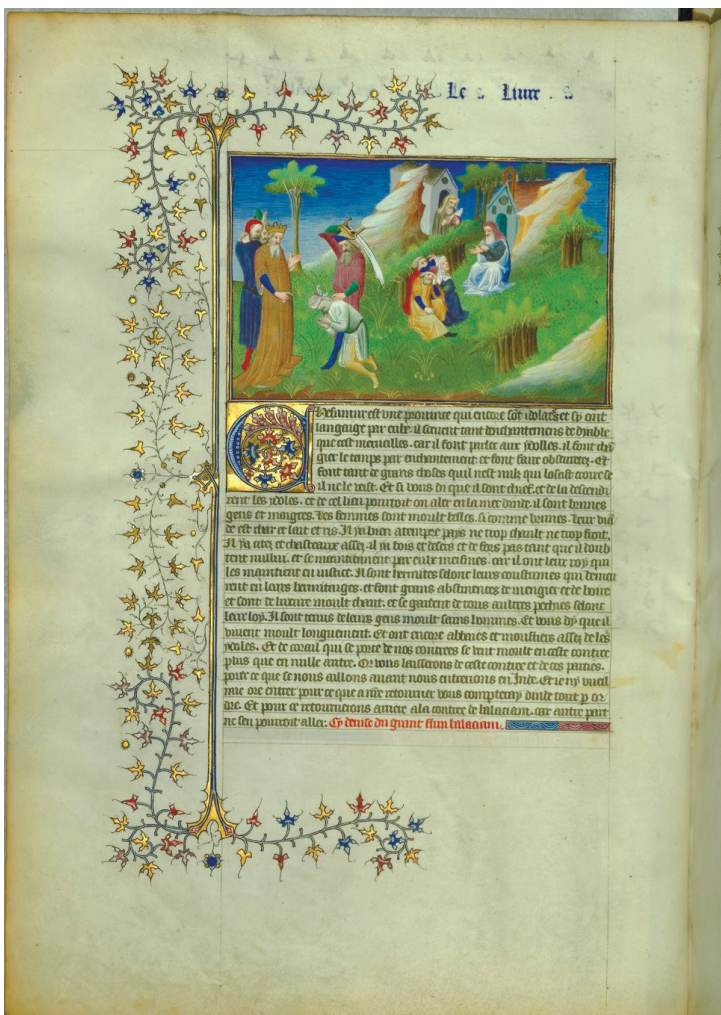 Le Liure
Chesimur est vne prouince qui encore sont ydolatres et sy ont
langaige par eulx. il sceuent tant denchantemens de dyable
que cest merueilles. car il font parler aux ydolles. il font chan
gier le temps par enchantement et font faire obscurtez. Et
font tant de grans choses quil nest nulz qui losast croire se
il ne le veist. Et si vous dy que il sont chief. et de la descendi
rent les ydoles. et de cel lieu pourroit on aler en la mer dinde. il sont brunes
gens et maigres. Les femmes sont moult belles. si comme brunes. Leur vian
de est char et lait et ris. Il ya bien atempre pays ne trop chault ne trop froit.
Il ya citez et chasteaux assez. il ya bois et desers et de fors pas tant que il doub
tent nullui. et se maintiennent par eulx meismes. car il ont leur roy qui
les maintient en iustice. Il sont hermites selonc leurs coustumes qui demeu
rent en leurs hermitages. et font grans abstinences de mengier et de boire
et sont de luxure moult chaut. et se gardent de tous aultres pechies selonc
leur loy. Il sont tenus de leurs gens moult sains hommes. Et vous dy que il
viuent moult longuement. Et ont encore abbaies et moustiers assez de les
ydoles. Et de corail qui se porte de nos contrees se vent moult en ceste contree
plus que en nulle autre. Or vous lairrons de ceste contree et de ces parties.
pour ce que se nous aillons auant nous enterions en Inde. Et ie ny vueil
mie ore entrer pour ce que a nostre retourner vous compteray dinde tout par or
dre. Et pour ce retournerons arriere a la contree de balaciam. car autre part
ne sen pourroit aller. Cy deuise du grant flun balaciam.